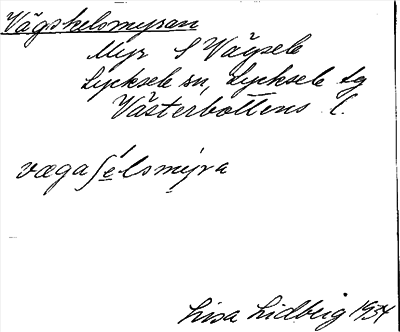 Vägskelomyran
Myr S Vägsele
Lycksele sn, Lycksele lg
Västerbottens l.
vægaʃélomýra
Lisa Lidberg 1934